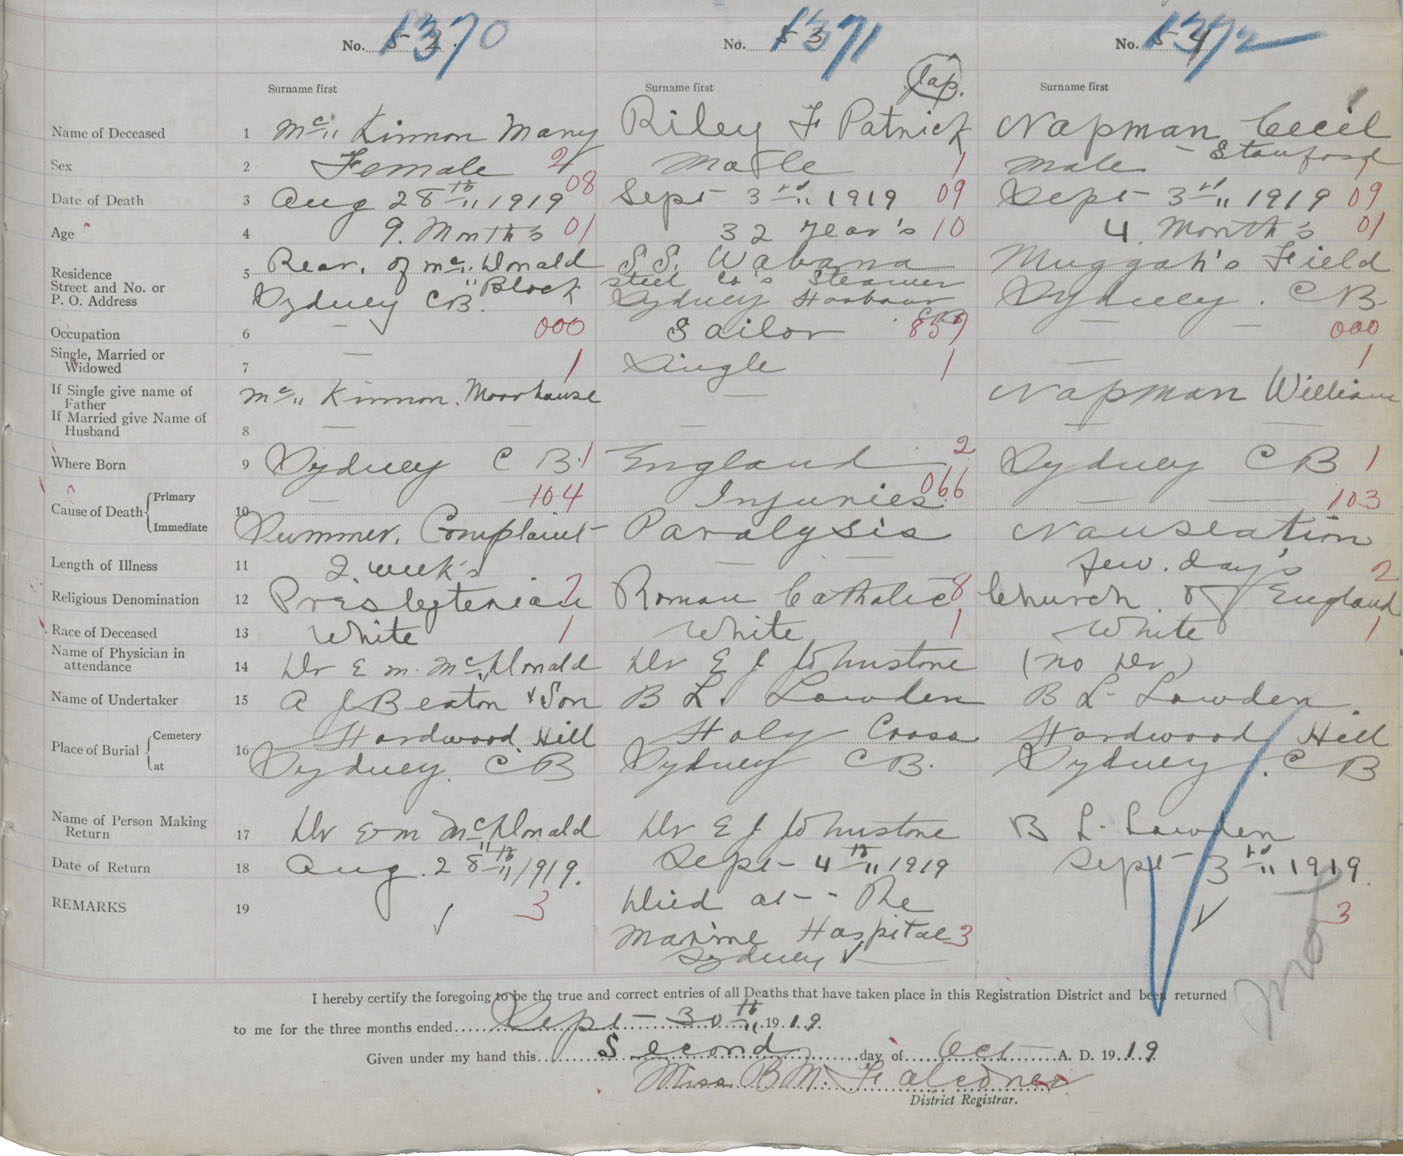 No. 52. 1370 No. 53 1371 No. 54 1372
Surname first Surname first Surname first
Name of Deceased 1 Mc" Kinnon Mary Riley F Patrick Napman Cecil
Stanford
Sex 2 Female 2 Male 1 Male 1
Date of Death 3 Aug 28th" 1919 08 Sept 3rd" 1919 09 Sept 3rd" 1919 09
Age 4 9. Months 01 32 Year's 10 4. Month's 01
Residence 5 Rear. of Mc" Donald S.S. Wabana Muggah's Field
Street and No. or " Block Steel Co's Steamer
P. O. Address Sydney CB. Sydney Harbour Sydney. CB.
Occupation 6 — 000 Sailor 859 — — 000
Single, Married or Widowed 7 — 1 Single 1 — 1
If Single give name of Father Mc" Kinnon. Moorhouse — Napman William
If Married give Name of Husband 8 — — — —
Where Born 9 Sydney C B. 1 England 2 Sydney CB 1
Cause of Death Primary 10 — 104 Injuries 066 — — 103
Immediate Summer. Complaint Paralysis Nauseation
Length of Illness 11 2. week's — few. day's 2
Religious Denomination 12 Presbyterian 7 Roman Catholic 8 Church. of England
Race of Deceased 13 White 1 White 1 White 1
Name of Physician in attendance 14 Dr E M. Mc" Donald Dr E J Johnstone (no Dr)
Name of Undertaker 15 A J Beaton & Son B L. Lowden B L. Lowden.
Place of Burial Cemetery 16 Hardwood Hill Holy Cross Hardwood Hill
at Sydney. CB Sydney CB. Sydney. CB
Name of Person Making Return 17 Dr E M McDonald Dr E J Johnstone B L. Lowden
Date of Return 18 Aug. 28th" 1919. Sept 4th" 1919 Sept 3rd" 1919.
REMARKS 19 3 Died at - the 3
Marine Hospital 3
Sydney
I hereby certify the foregoing to be the true and correct entries of all Deaths that have taken place in this Registration District and been returned
to me for the three months ended Sept - 30th" 1919.
Given under my hand this Second day of Oct A. D. 1919
Miss B M. Falconer
District Registrar.